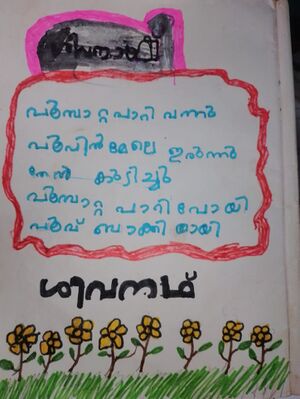 പൂമ്പാറ്റ പാറി വന്നു
പൂവിൻ മേലെ ഇരുന്നു
തേൻ കുടിച്ചു
പൂമ്പാറ്റ പാറി പോയി
പൂവ് ബാക്കിയായി
ശിവനഥ്